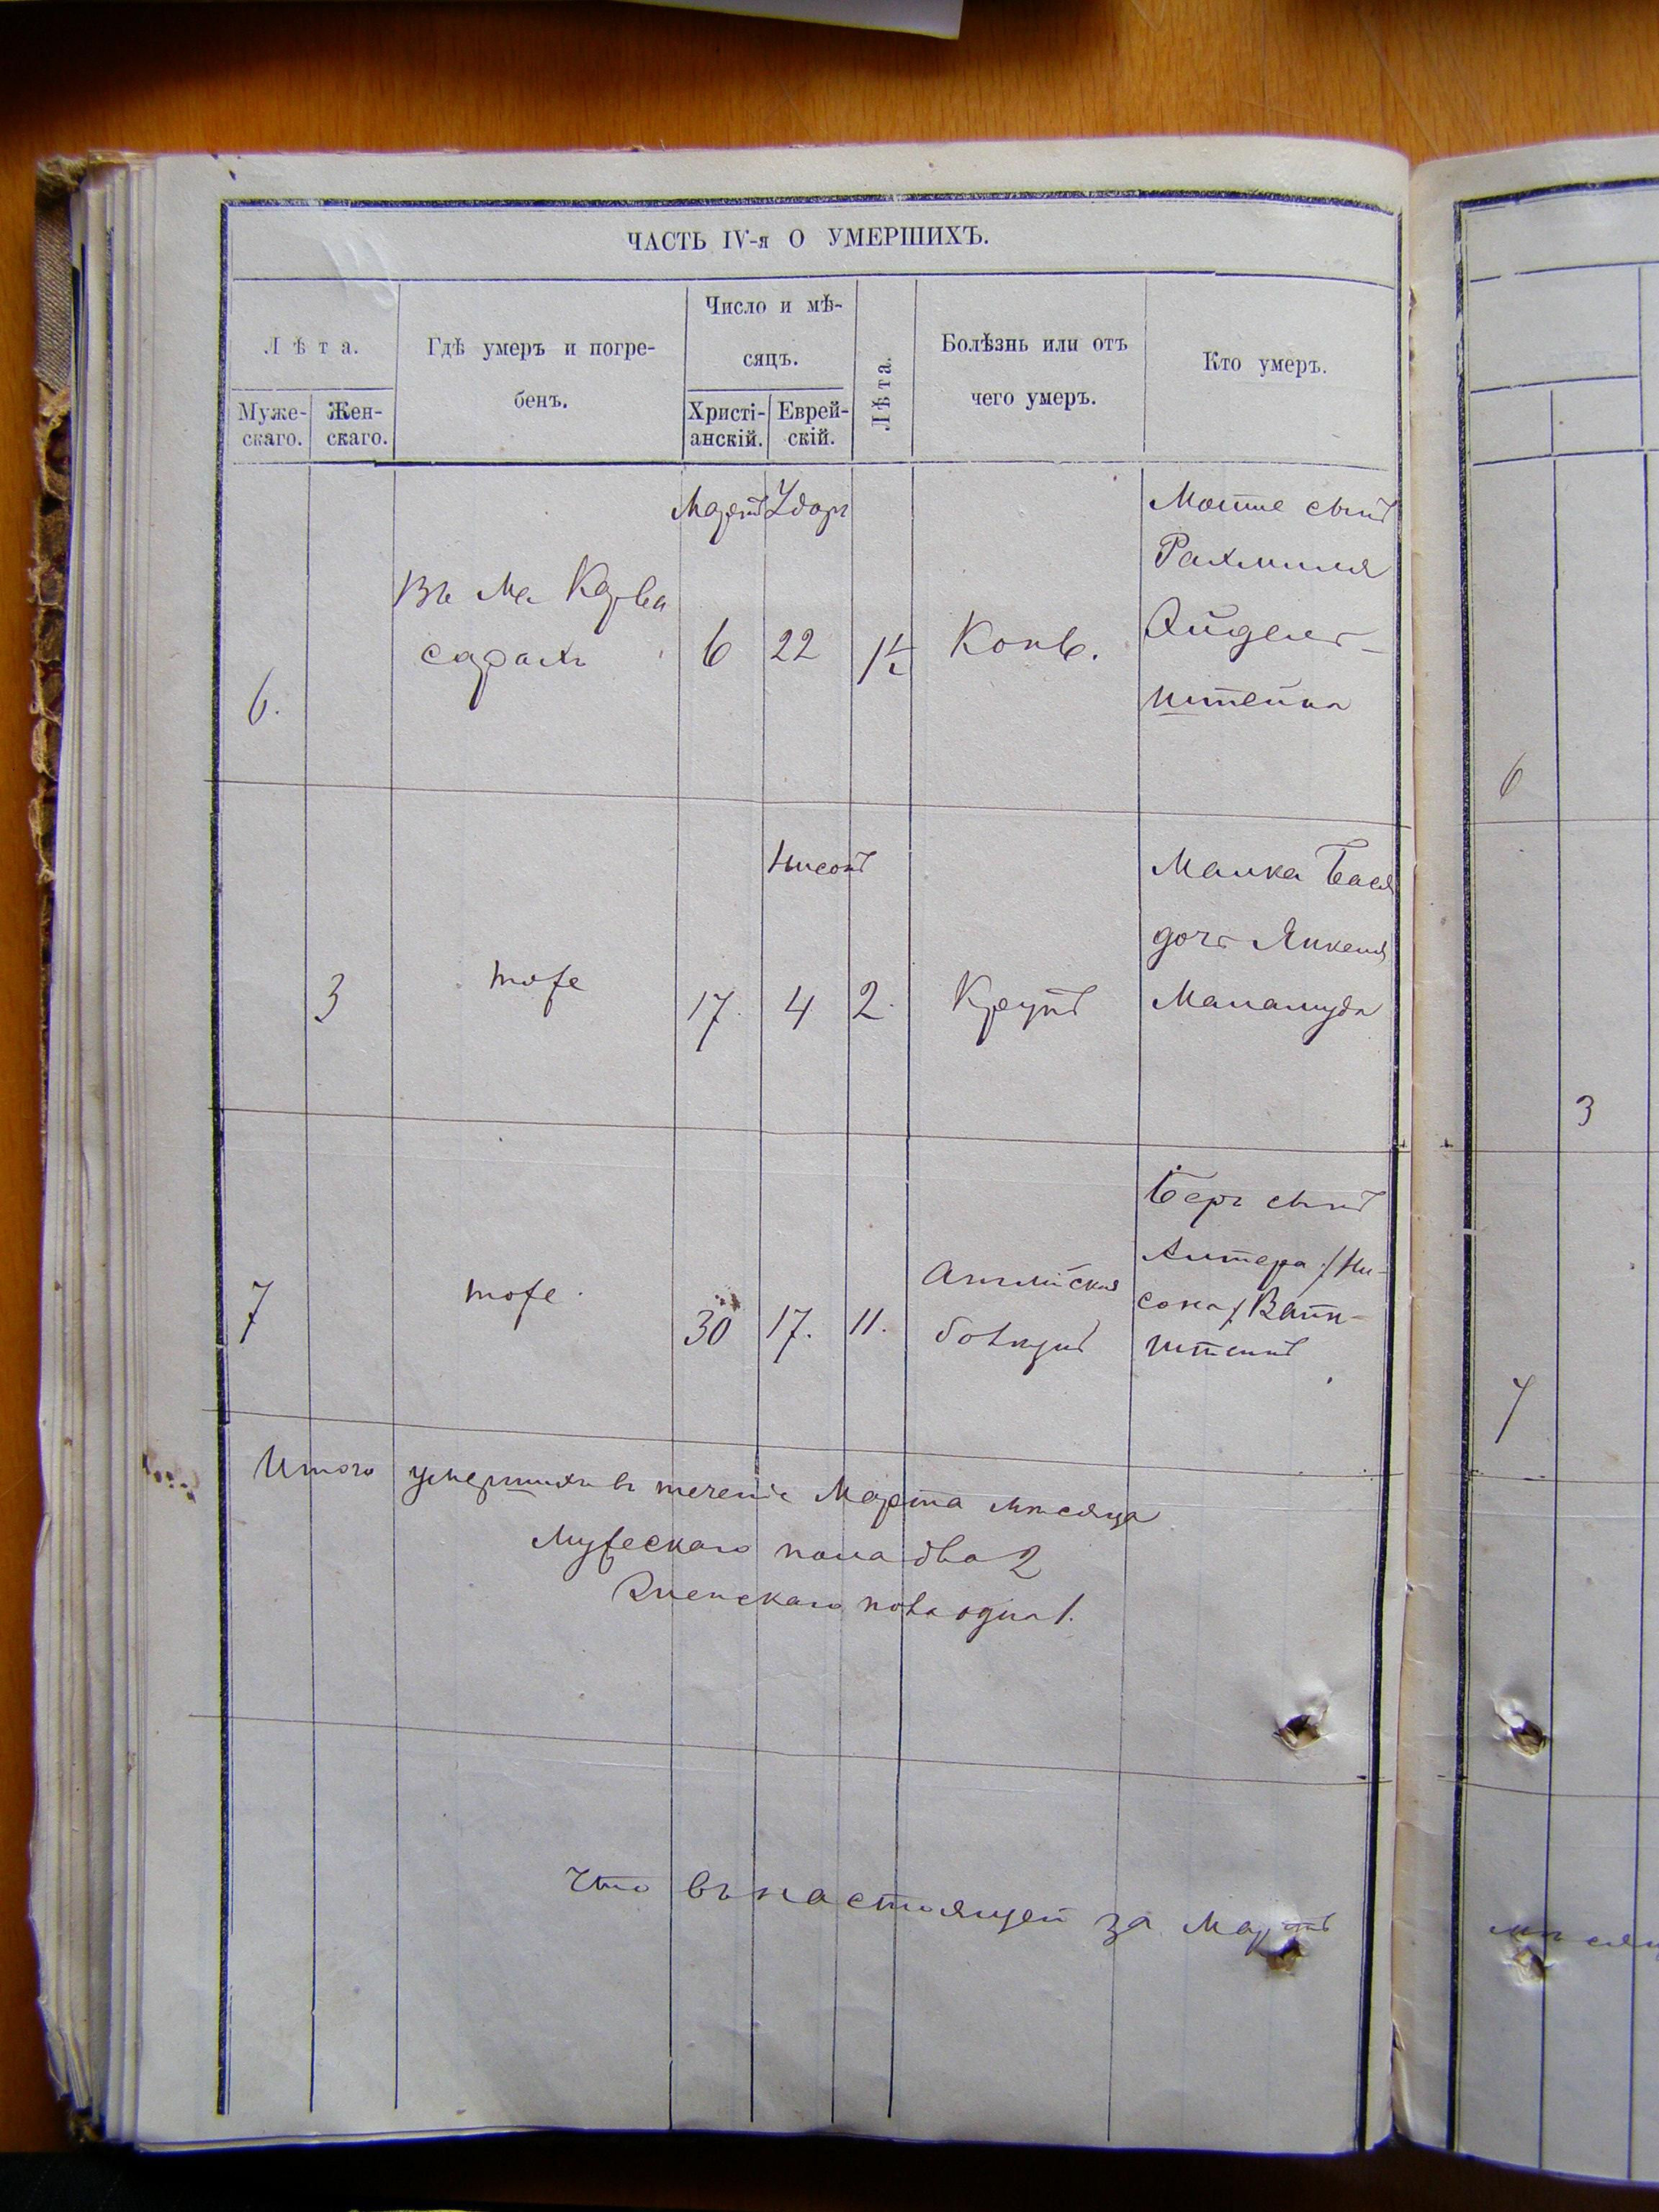 ЧАСТЬ IV-я О УМЕРШИХЪ.
Лѣта.
Муже-
скаго.
Жен-
скаго.
Гдѣ умеръ и погре-
бенъ.
Число и мѣ-
сяцъ.
Христі-
анскій.
Еврей-
скій.
Лѣта.
Болѣзнь или отъ
чего умеръ.
Кто умеръ.
6.
Въ Ма Карва
сарахъ
Мартъ
6
Удоръ
22
1½
Конв.
Мотте сынъ
Рахмиля
Эйдель-
штейна
3
тоже
17.
Нисонъ
4
2.
Крупъ
Малка Бася
дочь Янкеля
Маламуда
7
тоже.
30
17.
11.
Англійская
болѣзнь
Беръ сынъ
Алтера /Ни-
сона/ Вайн-
штейнъ
Итого умершихъ въ теченіе Марта мѣсяца
Мужескаго пола два 2
Женскаго пола одна 1.
Что въ настоящей за Мартъ
6
3
7